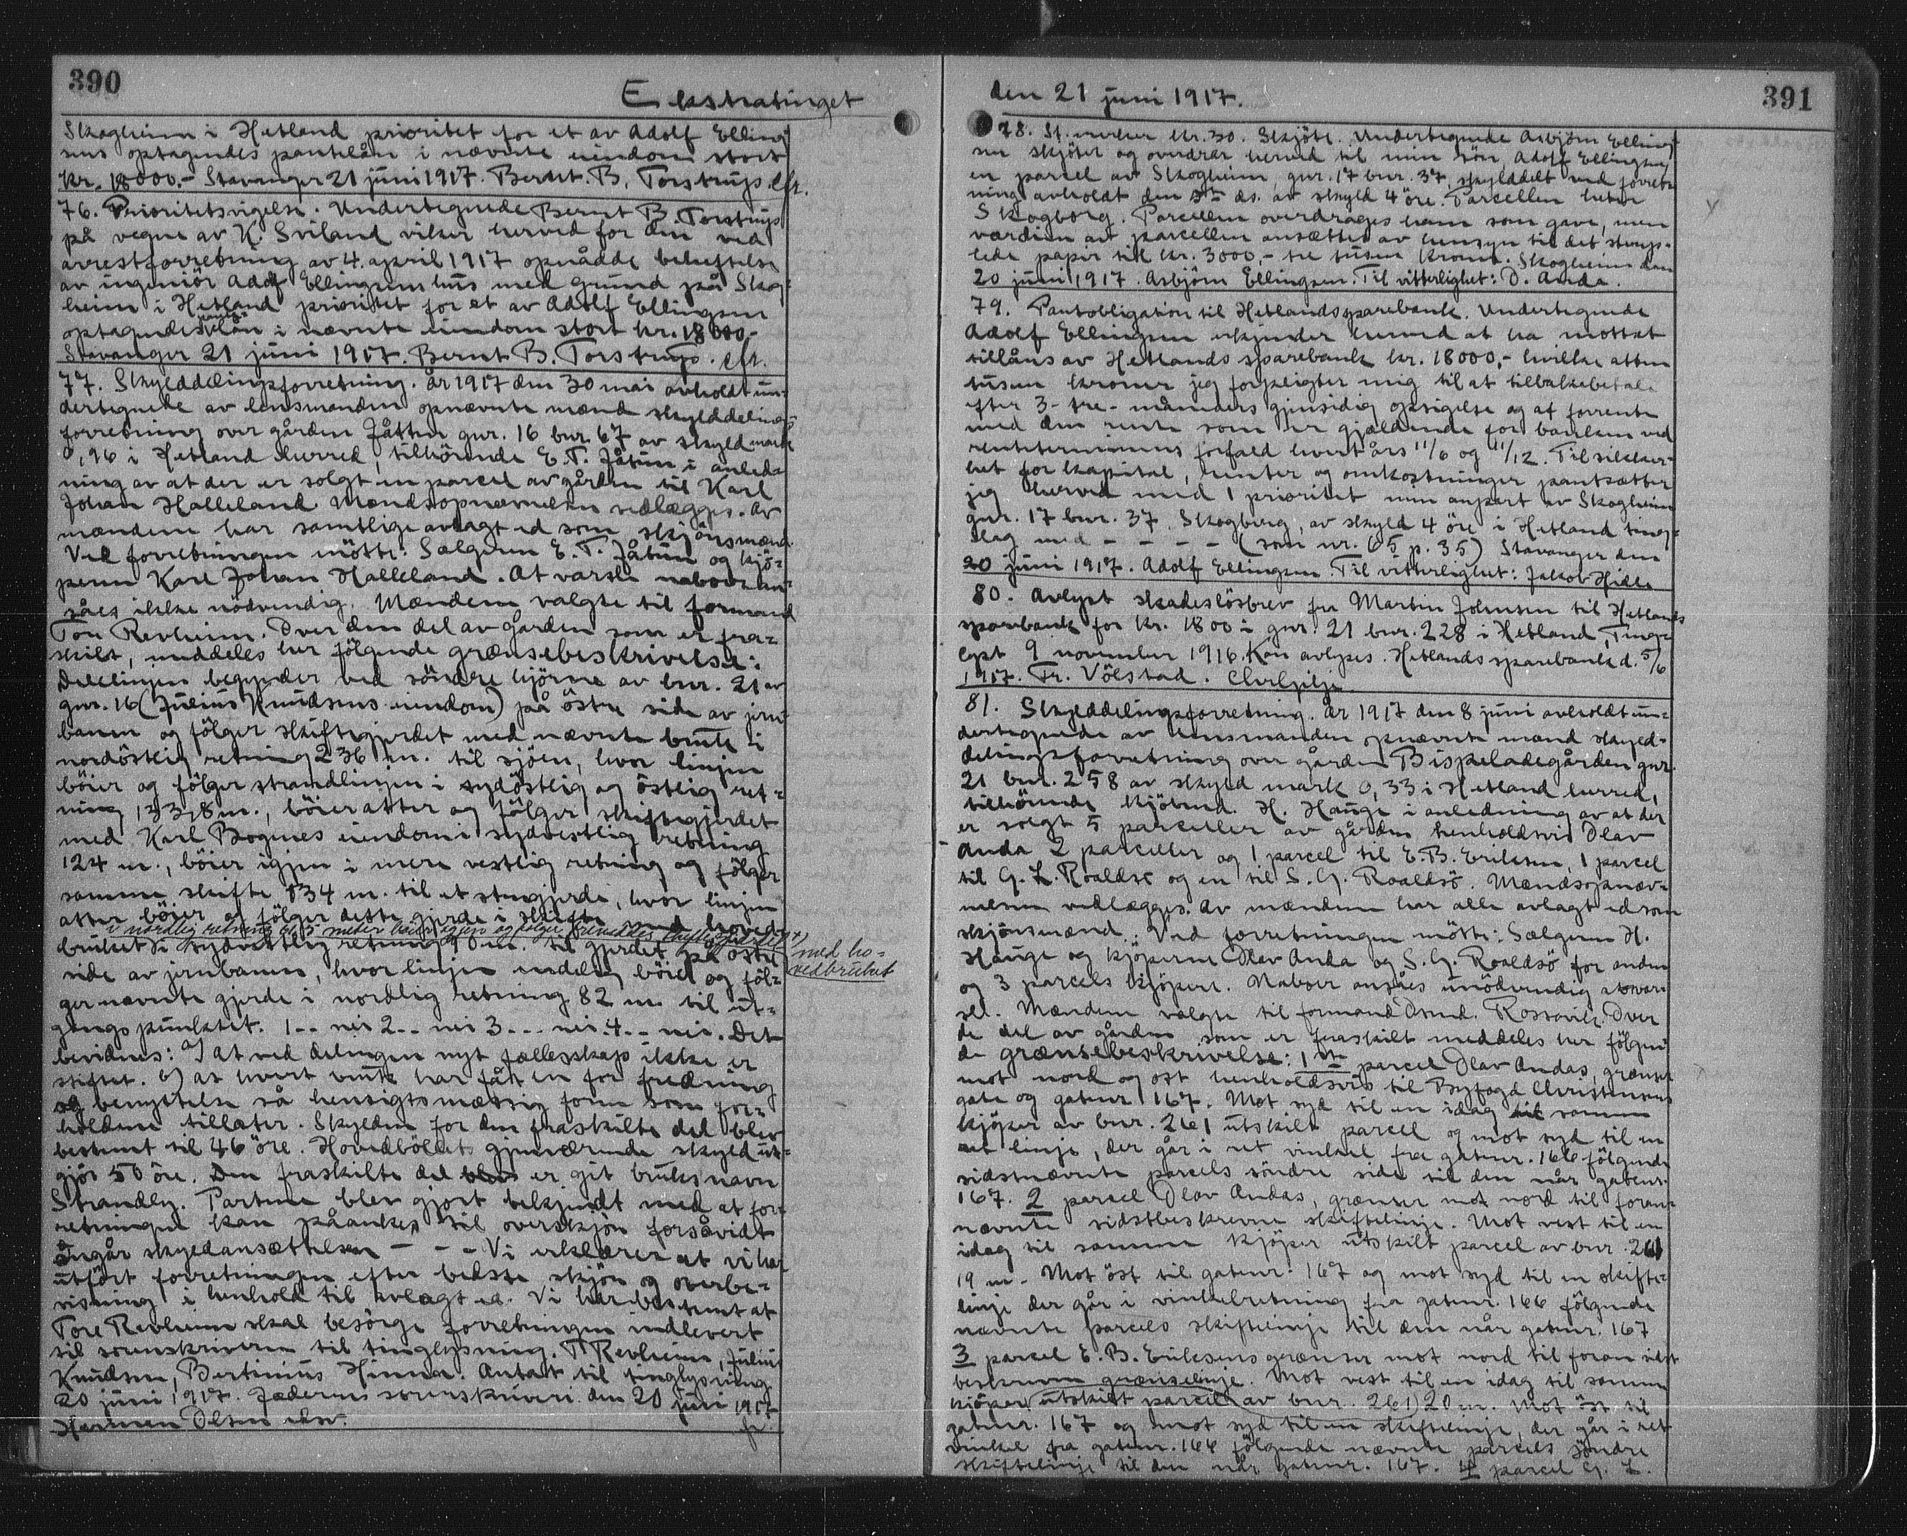 390
Ekstratinget
Skogheim i Hetland prioritet for et av Adolf Elling-
sens optagendes pantelån i nævnte eiendom stort
kr. 18000.- Stavanger 21 juni 1917. Bernt. B. Torstrup. eft.
76. Prioritetsvigelse. Undertegnede Bernt B. Torstrup
på vegne av K. Sviland viker herved for den ved
arrestforretning av 4. april 1917 opnådde behæftelse
av ingeniör Adolf Ellingsens hus med grund på Skog-
heim i Hetland prioritet for et av Adolf Ellingsen
optagendes pantelån i nævnte eiendom stort kr. 18000.-
Stavanger 21 juni 1917. Bernt B. Torstrup. eft.
77. Skylddelingsforretning. År 1917 den 30 mai avholdt un-
dertegnede av lensmanden opnævnte mænd skylddelings-
forretning over gården Jåtten gnr. 16 bnr. 67 av skyld mark
0,96 i Hetland herred, tilhörende E. T. Jåtun i anled-
ning av at der er solgt en parcel av gården til Karl
Johan Halleland. Mændsopnævnelsen vedlægges. Av
mændene har samtlige avlagt ed som skjönsmænd.
Ved forretningen mötte: Sælgeren E. T. Jåtun og kjö-
peren Karl Johan Halleland. At varsle naboer an-
såes ikke nödvendig. Mændene valgte til formand
Tore Revheim. Over den del av gården som er fra-
skilt, meddeles her fölgende grænsebeskrivelse:
Delelinjen begynder ved söndre hjörne av bnr. 21 av
gnr. 16 (Julius Knudsens eiendom) på östre side av jern-
banen og fölger skiftegjerdet med nævnte bruk i
nordöstlig retning 236 m. til sjöen, hvor linjen
böier og fölger strandlinjen i sydöstlig og östlig ret-
ning 133,8 m., böier atter og fölger skiftegjerdet
med Karl Bognes eiendom i sydvestlig retning
124 m., böier igjen i mere vestlig retning og fölger
samme skifte 134 m. til et stengjerde, hvor linjen
atter böier og fölger dette gjerde i skifte med hoved-
i nordlig retning 61,5 meter böier igjen og fölger
bruket i sydvestlig retning 90 m. til gjerdet på östre
med ho-
vedbruket
side av jernbanen, hvor linjen endelig böier og föl-
ger nævnte gjerde i nordlig retning 82 m til ut-
gangspunktet. 1 -- nei 2 -- nei 3 --- nei. 4 -- nei. Det
bevidnes: a) at ved delingen nyt fællesskap ikke er
stiftet. b) at hvert bruk har fått en for fredning
og benyttelse så hensigtsmæssig form som for-
holdene tillater. Skylden for den fraskilte del blev
bestemt til 46 öre. Hovedbölets gjenværende skyld ut-
gjör 50 öre. Den fraskilte del blev er git bruksnavn
Strandly. Partene blev gjort bekjendt med at for-
retningen kan påankes til overskjön forsåvidt
angår skyldansættelsen - - - Vi erklærer at vi har
utfört forretningen efter bedste skjön og overbe-
visning i henhold til avlagt ed. Vi har bestemt at
Tore Revheim skal besörge forretningen indlevert
til sorenskriveren til tinglysning. T Revheim, Julius
Knudsen, Bertinius Hinna. Antat til tinglysning
20 juni 1917. Jæderens sorenskriveri den 20 juni 1917
Herman Olsen ekv.
fr.
den 21 juni 1917.
391
78. St. merker kr. 30. Skjöte. Undertegnede Asbjörn Elling-
sen skjöter og overdrar herved til min sön, Adolf Ellingsen,
en parcel av Skogheim, gnr. 17 bnr. 37, skylddelt ved forret-
ning avholdt den ds. av skyld 4 öre. Parcellen heter
Skogborg. Parcellen overdrages ham som gave, men
værdien av parcellen ansættes av hensyn til det stemp-
lede papir til kr. 3000.- tre tusen kroner. Skogheim den
20 juni 1917. Asbjörn Ellingsen. Til vitterlighet: O. Anda.
79. Pantobligation til Hetlands sparebank. Undertegnede
Adolf Ellingsen erkjender herved at ha mottat
tillåns av Hetlands sparebank kr. 18000,- hvilke atten
tusen kroner jeg forpligter mig til at tilbakebetale
efter 3- tre- måneders gjensidig opsigelse og at forrente
med den rente som er gjældende for banken ved
renteterminens forfald hvert års 11/6 og 11/12. Til sikker-
het for kapital, renter og omkostninger pantsætter
jeg herved med 1 prioritet min anpart av Skogheim
gnr. 17 bnr. 37, Skogberg, av skyld 4 öre i Hetland ting-
lag med - - - - (som nr. 65 p. 35) Stavanger den
20 juni 1917. Adolf Ellingsen. Til vitterlighet: Jakob Hille
80. Avlyst skadeslösbrev fra Martin Johnsen til Hetlands
sparebank for kr. 1800 i gnr. 21 bnr. 228 i Hetland, Ting-
lyst 9 november 1916. Kan avlyses. Hetlands sparebank d. 5/6
1917. Fr. Völstad.
81. Skylddelingsforretning. År 1917 den 8 juni avholdt un-
dertegnede av lensmanden opnævnte mænd skyld-
delingsforretning over gården Bispeladegården gnr.
21 bnr. 258 av skyld mark 0,33 i Hetland herred,
tilhörende kjöbmd. H. Hauge i anledning av at der
er solgt 5 parceller av gården henholdsvis Olav
Anda 2 parceller og 1 parcel til E. B. Eriksen, 1 parcel
til G. L. Roaldsö og en til S. G. Roaldsö. Mændsopnæv-
nelsen vedlægges. Av mændene har alle avlagt ed som
skjönsmænd. Ved forretningen mötte: Sælgeren H.
Hauge og kjöperne Olav Anda og S. G. Roaldsö for anden
og 3 parcels kjöpere. Naboer ansåes unödvendig at var-
sel. Mændene valgte til formand Osmd. Rossavik. Over
de del av gården som er fraskilt meddeles her fölgen-
de grænsebeskrivelse: 1ste parcel Olav Andas, grænser
mot nord og ost henholdsvis til Byfogd Christensens
gate og gatenr 167. Mot syd til en idag til samme
kjöper av bnr. 261 utskilt parcel og mot syd til en
ret linje, der går i ret vinkel fra gatenr. 166 fölgende
sidstnævnte parcels söndre side til den når gatenr.
167. 2 parcel Olav Andas, grænser mot nord til foran-
nævnte sidstbeskrevne skiftelinje. Mot vest til en
idag til samme kjöper utskilt parcel av bnr. 261
19 m. Mot öst til gatenr. 167 og mot syd til en skifte-
linje der går i vinkelretning fra gatenr. 166 fölgende
nævnte parcels skiftelinje til den når gatenr. 167
3 parcel E. B. Eriksens grænser mot nord til foran sidst
beskrevne grænselinje. Mot vest til en idag til samme
kjöper utskilt parcel av bnr. 261) 20 m. Mot öst til
gatenr. 167 og mot syd til en skiftelinje, der går i ret
vinkel fra gatenr. 166 fölgende nævnte parcels söndre
skiftelinje til den når gatenr. 167. 4 parcel G. L.